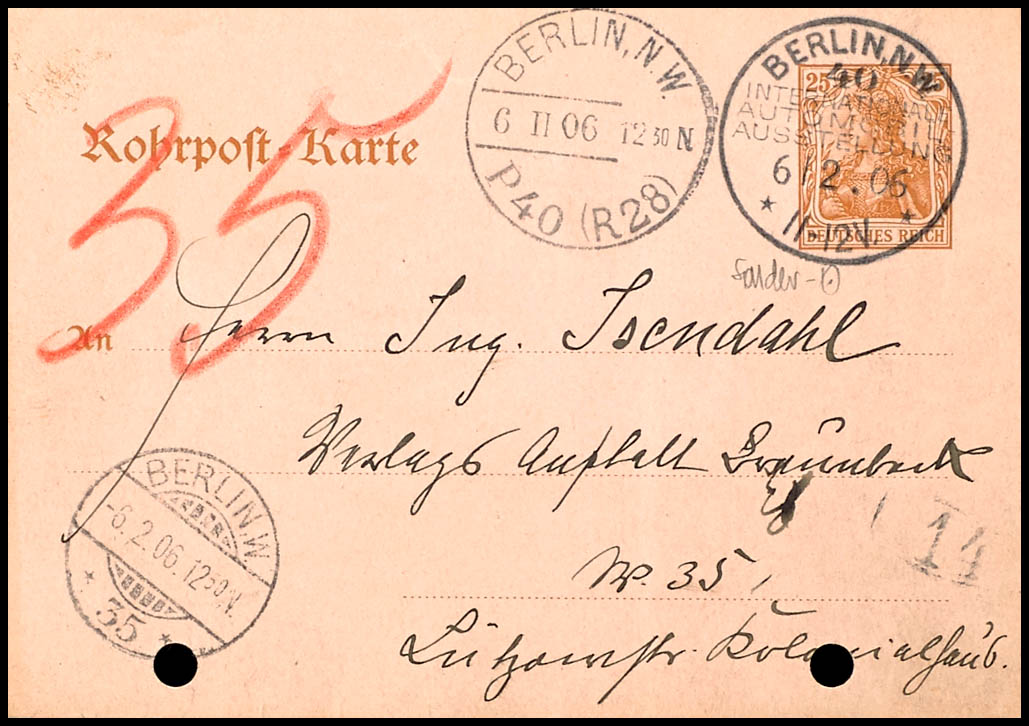 BERLIN, N.W.
6 II 06 12 30 N
P40 (R28)
BERLIN, N.W.
40
INTERNATIONALE
AUTOMOBIL-
AUSSTELLUNG
6/2.06
* 11-12V. *
25 25
DEUTSCHES REICH
Rohrpost-Karte
35
Sonder-O
An Herrn Ing. Isendahl
Verlags Anstalt Braunbeck
W. 35,
Lützowstr. Kolonialhaus.
14
BERLIN.W.
-6.2.06.12 30 N.
* 35 *